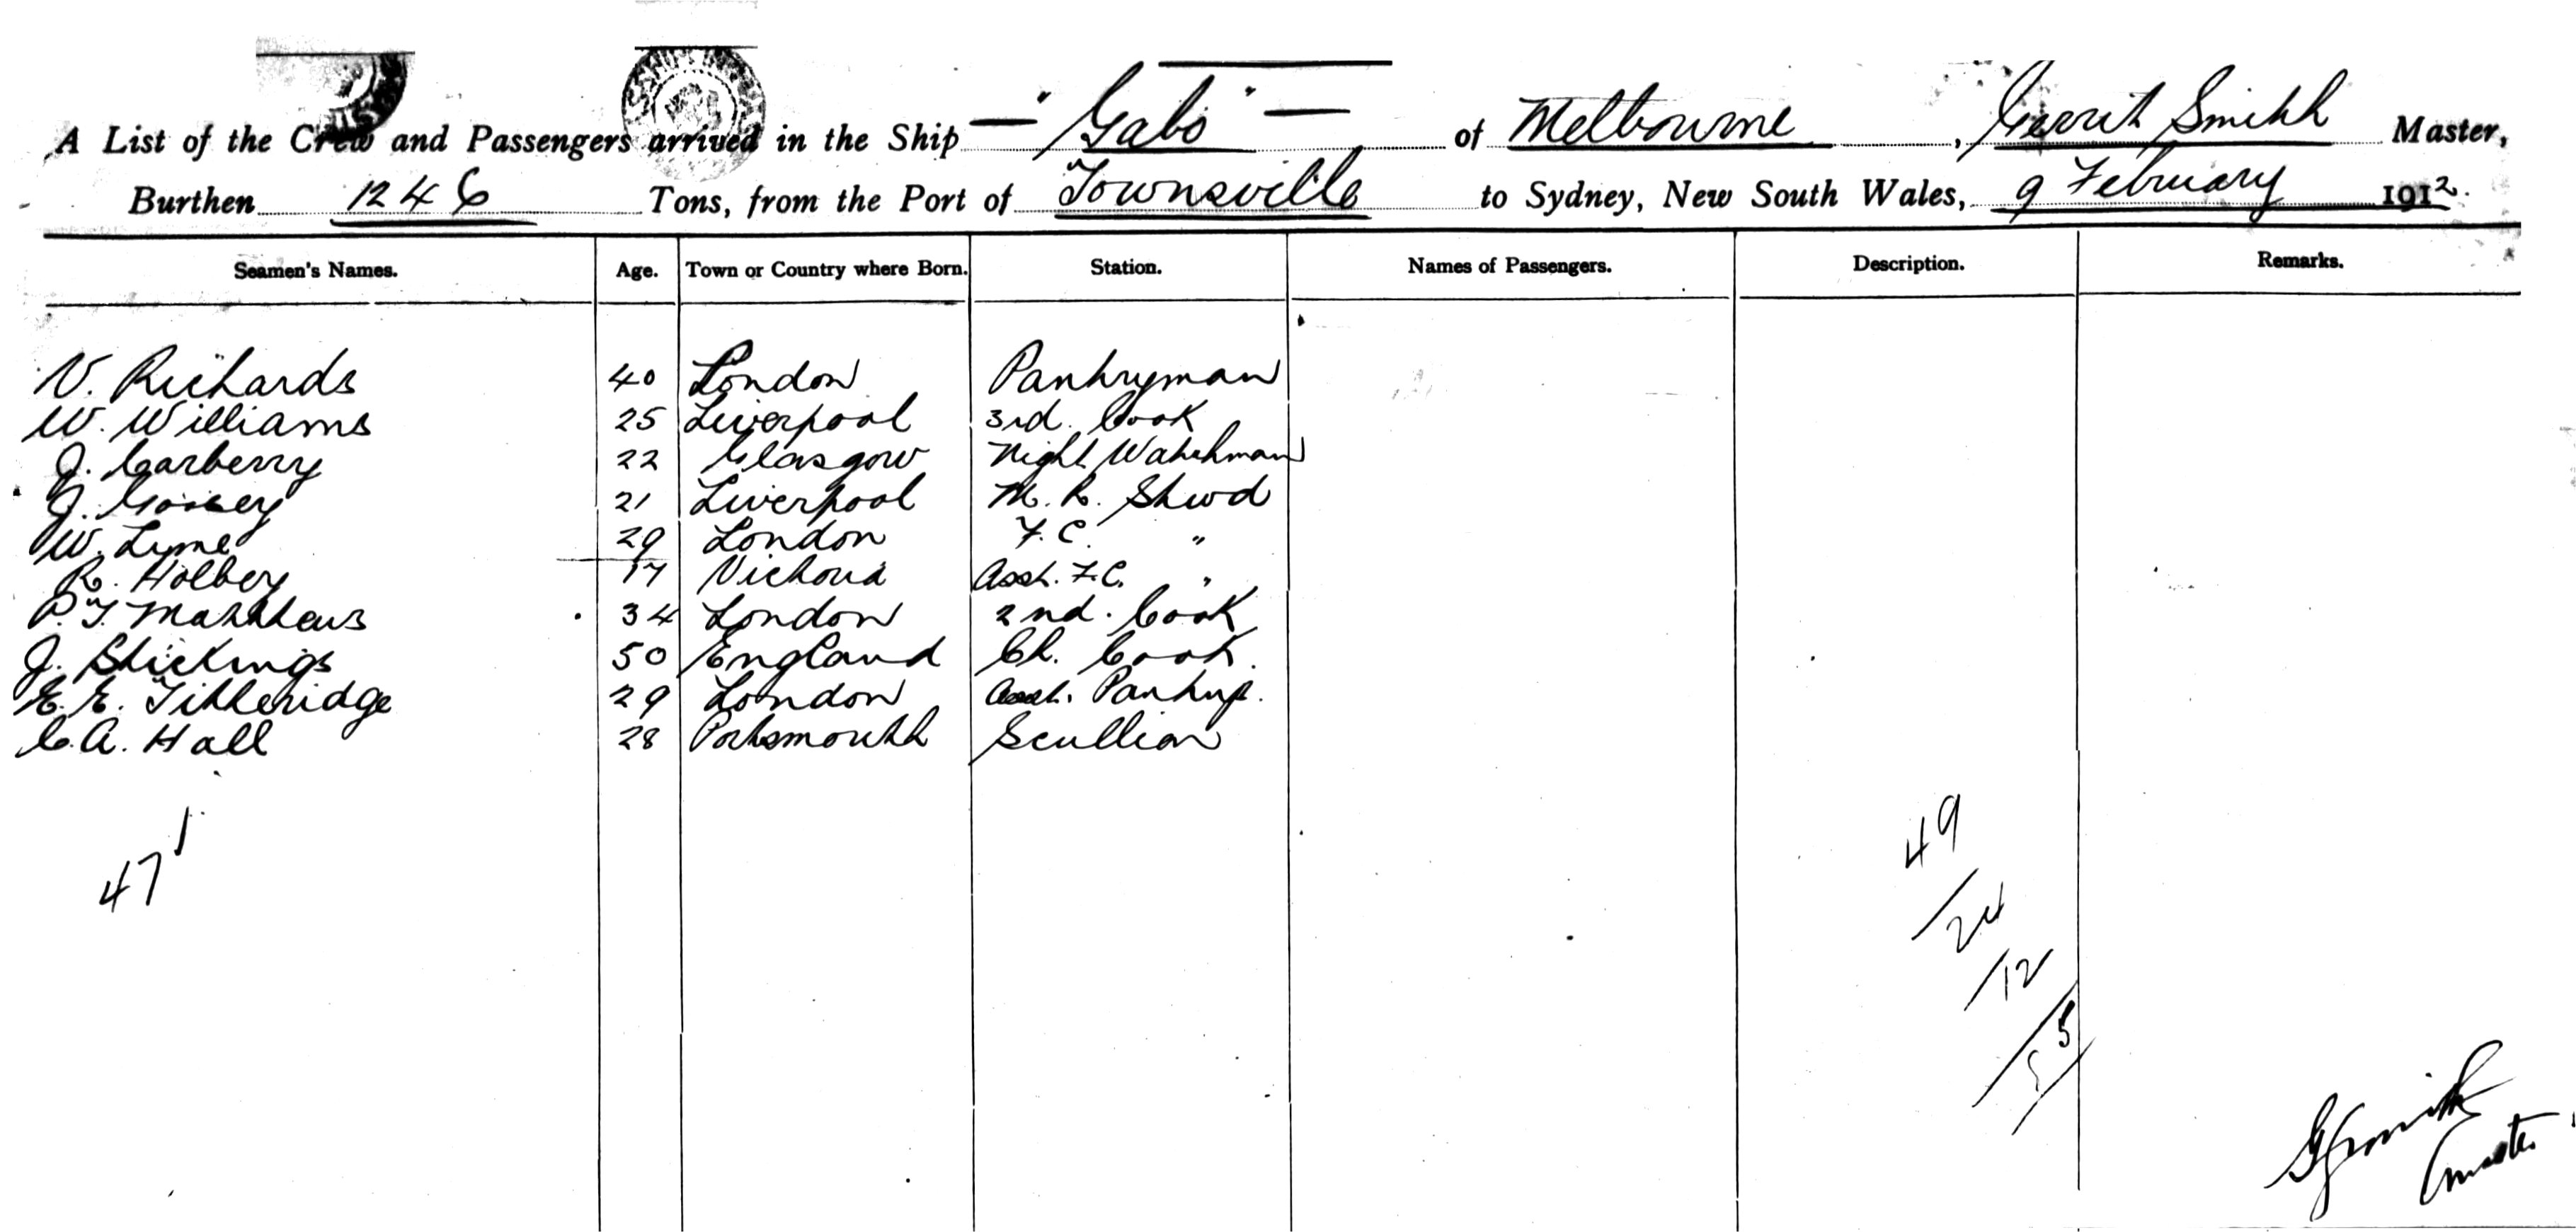 A List of the Crew and Passengers arrived in the Ship — "Gabo" — of Melbourne, Gerrit Smith Master,
Burthen 1246 Tons, from the Port of Townsville to Sydney, New South Wales, 9 February 1912.
Seamen's Names. Age. Town or Country where Born. Station. Names of Passengers. Description. Remarks.
V. Richards 40 London Pantryman
W. Williams 25 Liverpool 3rd. Cook
J. Carberry 22 Glasgow Night Watchman
J. 21 Liverpool M. R. Stwd
W. Lyme 29 London F.C. "
R. Holbey 17 Victoria Asst. F.C. "
P.T. Matthews 34 London 2nd. Cook
J. Stickings 50 England Ch. Cook.
E. E. Titheridge 29 London Asst. Pantry.
C. A. Hall 28 Portsmouth Scullion
47
49
/24
/12
G Smith
Master